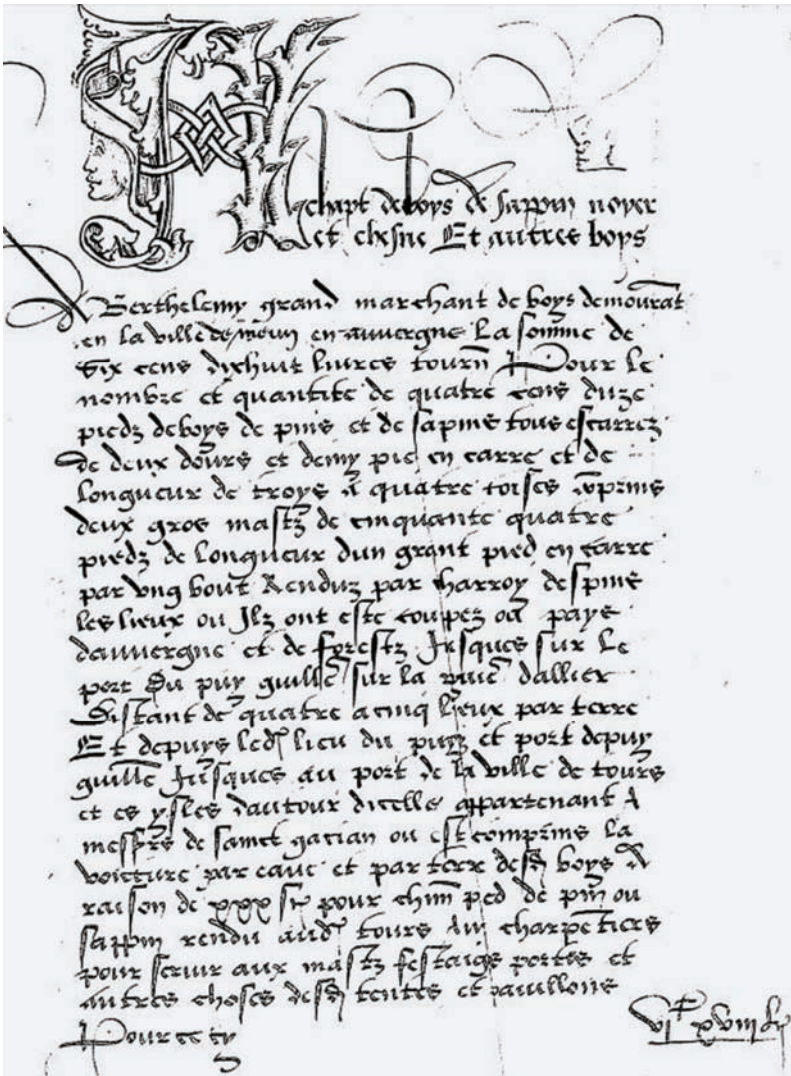 Achapt de boys de sappin noyer
et chesne Et autres boys
A Berthelemy grand marchant de boys demourāt
en la ville de en auvergne La somme de
Six cens dixhuit livres tourn̄ Pour le
nombre et quantite de quatre cens douze
piedz de boys de pins et de sapins tous escarrez
de deux dours et demy pie en carre et de
longueur de troys a quatre toises comprins
deux gros mastz de cinquante quatre
piedz de longueur dun grant pied en carre
par ung bout Renduz par charroy despuis
les lieux ou Ilz ont este coupez ou pays
dauvergne et de forestz Jusques sur le
port Du puy guillē sur la rivie᷑ dallier
Distant de quatre a cinq lieux par terre
Et depuys led lieu du puy et port depuy
guillē Jusques au port de la ville de tours
et es ysles dautour dicelle appartenant A
messrs de sainct gatian ou est comprins la
voicture par eaue et par terre desd boys A
raison de xxx s pour ped de pin ou
sappin rendu aud tours Au charpētiers
pour servir aux mastz festaige portes et
autres choses desd tentes et pavillons
Pour cecy vic xviii l